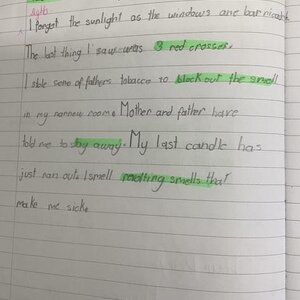 I forget the sunlight as the windows are barricaded
The last thing I saw was 3 red crosses.
I stole some of fathers tobacco to block out the smell
in my narrow room. Mother and father have
told me to stay away. My last candle has
just ran out. I smell revolting smells that
make me sick.